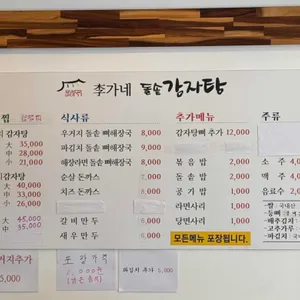 李가네 돌솥 감자탕
찜
식사류
추가메뉴
주류
감자탕
大 35,000
中 28,000
小 21,000
大 40,000
中 33,000
小 26,000
大 45,000
中 35,000
우거지 돌솥 뼈해장국 8,000
파김치 돌솥 뼈해장국 9,000
해장라면 돌솥 뼈해장국 9,000
순살 돈까스 7,000
치즈 돈까스 8,000
갈비만두 5,000
새우만두 6,000
감자탕뼈 추가 12,000
볶음밥 2,000
돌솥밥 2,000
공기밥 1,000
라면사리 1,000
당면사리 1,000
모든메뉴 포장됩니다.
소주 4,0
맥주 4,0
음료수 2,0
파김치 추가 5,000
거지추가
5,000